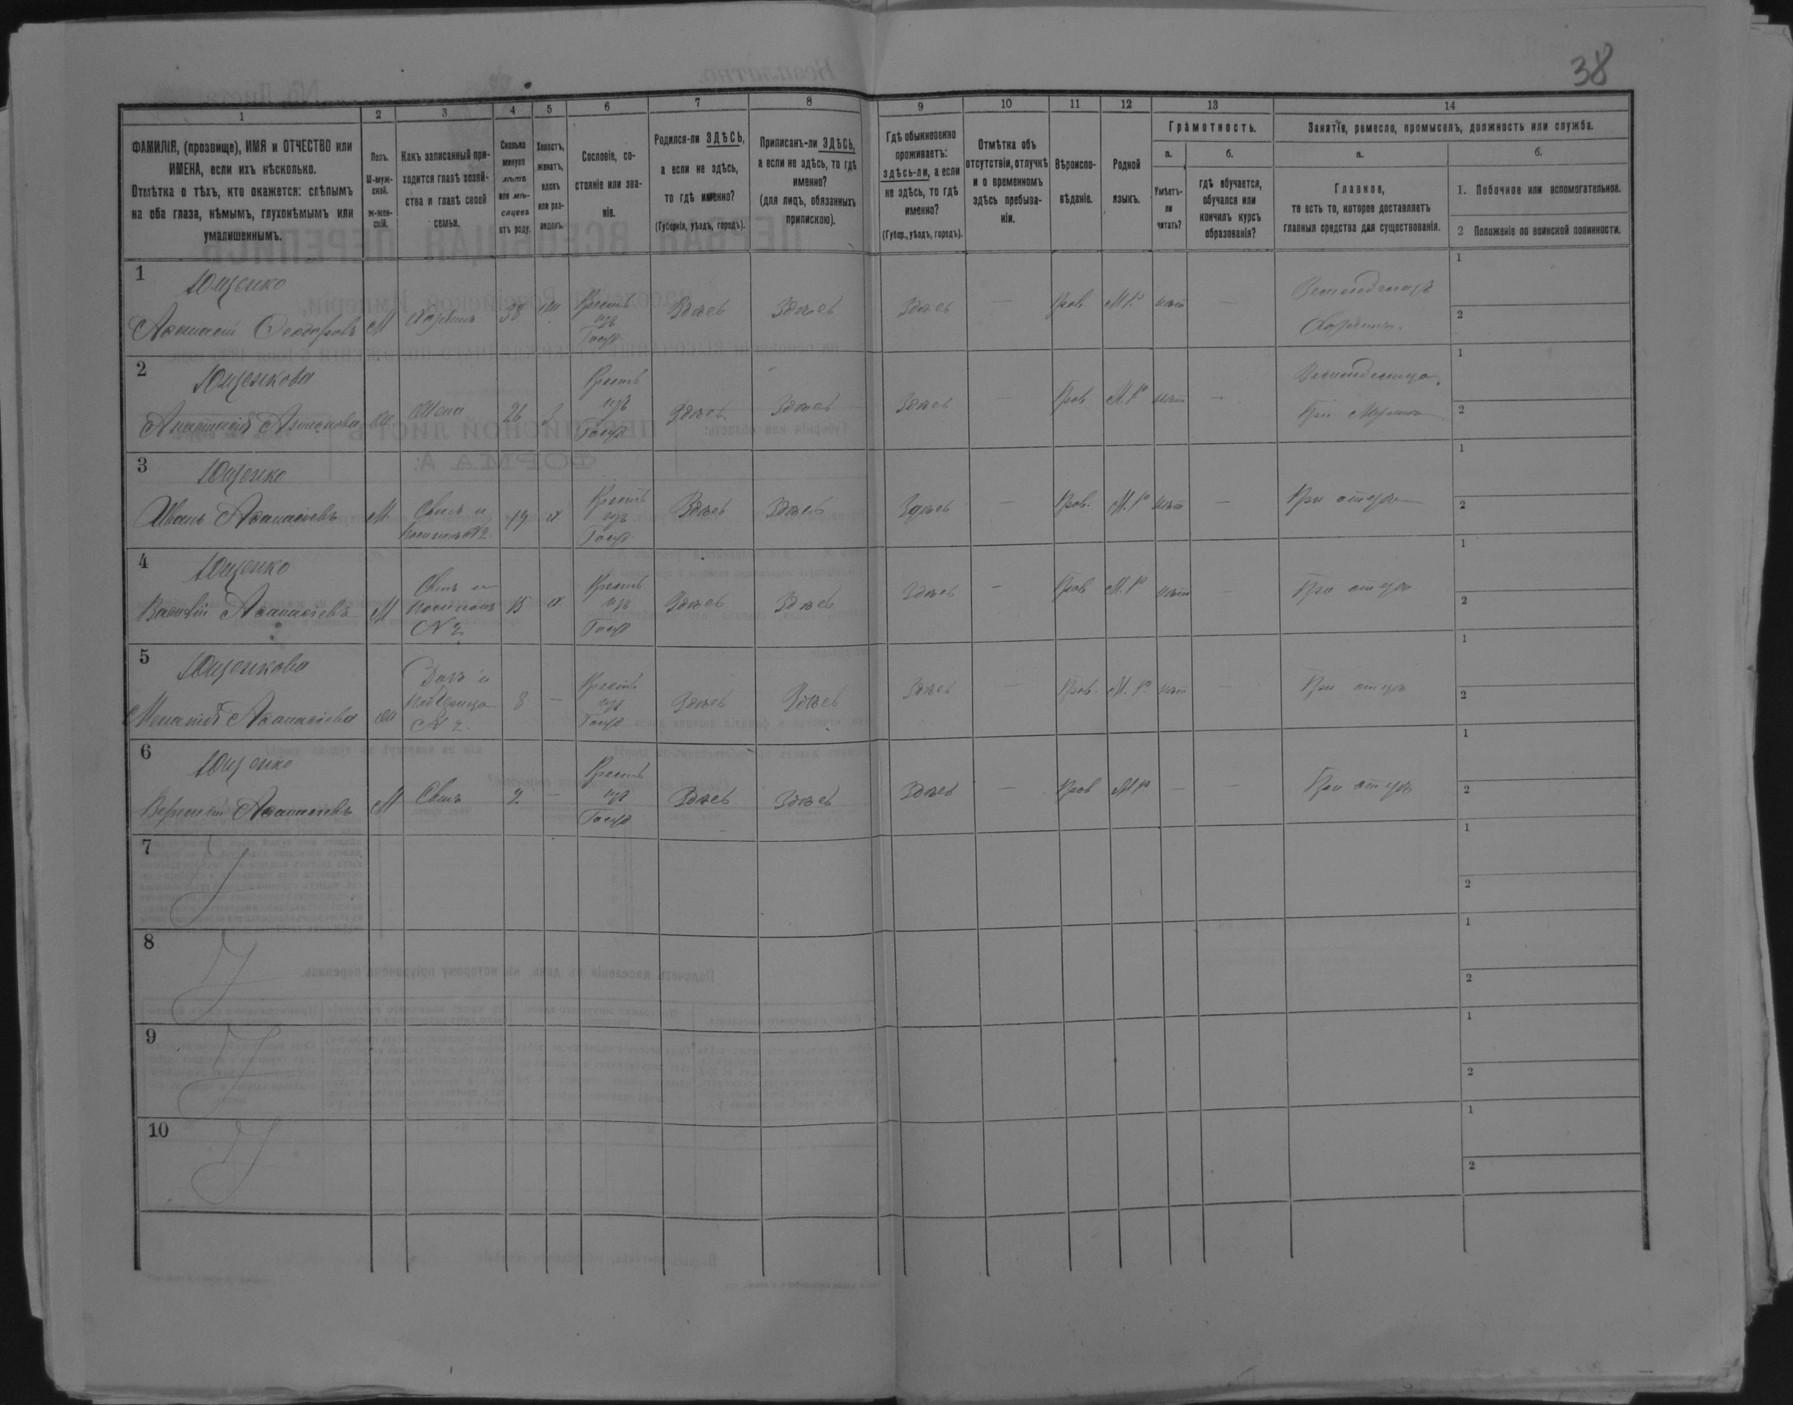 38
1
2
3
4
5
6
7
8
9
10
11
12
13
14
ФАМИЛІЯ, (прозвище), ИМЯ и ОТЧЕСТВО или
ИМЕНА, если ихъ нѣсколько.
Отмѣтка о тѣхъ, кто окажется: слѣпымъ
на оба глаза, нѣмымъ, глухонѣмымъ или
умалишеннымъ.
Полъ.
М-муж-
ской.
ж-жен-
скій.
Какъ записанный при-
ходится главѣ хозяй-
ства и главѣ своей
семьи.
Сколько
минуло
лѣтъ
или мѣ-
сяцевъ
отъ роду.
Холостъ,
женатъ,
вдовъ
или раз-
веденъ.
Сословіе, со-
стояніе или зва-
ніе.
Родился-ли ЗДѢСЬ,
а если не здѣсь,
то гдѣ именно?
(Губернія, уѣздъ, городъ).
Приписанъ-ли ЗДѢСЬ,
а если не здѣсь, то гдѣ
именно?
(для лицъ, обязанныхъ
припискою).
Гдѣ обыкновенно
проживаетъ:
здѣсь-ли, а если
не здѣсь, то гдѣ
именно?
(Губер., уѣздъ, городъ).
Отмѣтка объ
отсутствіи, отлучкѣ
и о временномъ
здѣсь пребыва-
ніи.
Вѣроиспо-
вѣданіе.
Родной
языкъ.
Грамотность.
а.
б.
Умѣетъ-
ли
читать?
гдѣ обучается,
обучался или
кончилъ курсъ
образованія?
Занятіе, ремесло, промыселъ, должность или служба.
а.
б.
Главное,
то есть то, которое доставляетъ
главныя средства для существованія.
1. Побочное или вспомогательное.
2 Положеніе по воинской повинности.
1
Ющенко
Афанасій Феодоровъ М Хозяинъ 38 Крестъ изъ Госуд Здѣсь Здѣсь Здѣсь — Прав. М.Р. нѣтъ —
Хозяинъ.
1
2
2
Ющенкова
Анастасія жена 26 Крестъ изъ Госуд Здѣсь Здѣсь Здѣсь — Прав М.Р нѣтъ —
При мужѣ
1
2
3
Ющенко
Иванъ Афанасіевъ М Сынъ и Крестъ изъ Госуд Здѣсь Здѣсь Здѣсь — Прав. М.Р нѣтъ — При отцѣ
1
2
4
Ющенко
Василій Афанасіевъ М Сынъ и №2 15 Крестъ изъ Госуд Здѣсь Здѣсь Здѣсь — Прав М.Р нѣтъ — При отцѣ
1
2
5
Ющенкова
Афанасіева Дочь и №2. 8 — Крестъ изъ Госуд Здѣсь Здѣсь Здѣсь — Прав. М.Р. нѣтъ — При отцѣ
1
2
6
Ющенко
Афанасіевъ М Сынъ 2 — Крестъ изъ Госуд Здѣсь Здѣсь Здѣсь — Прав М.Р — — При отцѣ
1
2
7
1
2
8
1
2
9
1
2
10
1
2